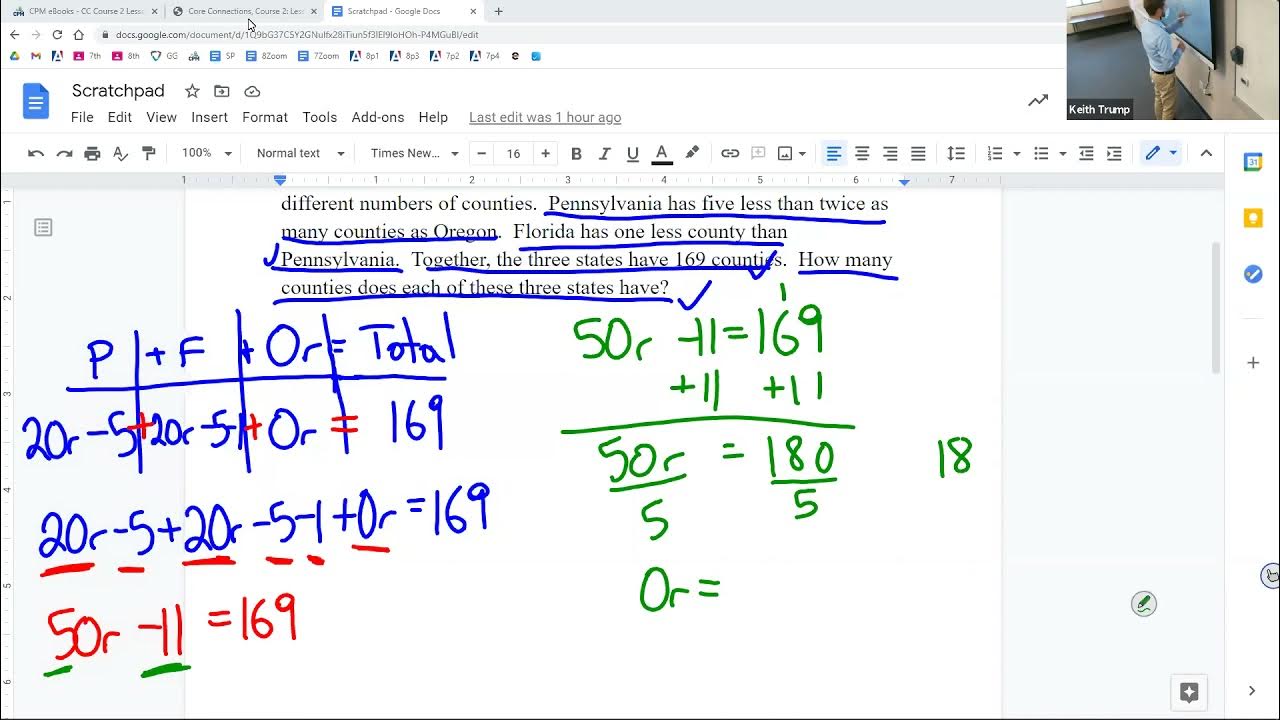 CPM eBooks - CC Course 2 Less
Core Connections, Course 2: Less
Scratchpad - Google Docs
M
7th
8th
GG
SP
8Zoom
7Zoom
8p1
8p3
7p2
7p4
Scratchpad
File Edit View Insert Format Tools Add-ons Help Last edit was 1 hour ago
100% Normal text Times New... 16 B I U A
Keith Trump
1 1 2 3 4 5 6 7
1
2
3
4
5
6
31
different numbers of counties. Pennsylvania has five less than twice as
many counties as Oregon. Florida has one less county than
Pennsylvania. Together, the three states have 169 counties. How many
counties does each of these three states have?
P + F + Or = Total
2Or - 5 + 2Or - 5 - 1 + Or = 169
2Or - 5 + 2Or - 5 - 1 + Or = 169
5Or - 11 = 169
1
5Or - 11 = 169
+11 +11
5Or = 180
5 5
18
Or =